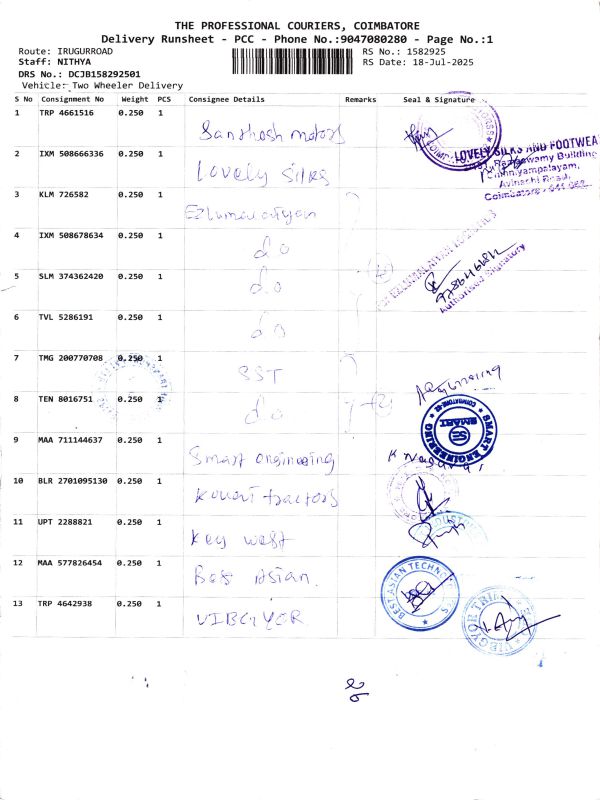 THE PROFESSIONAL COURIERS, COIMBATORE
Delivery Runsheet - PCC - Phone No.:9047080280 - Page No.:1
Route: IRUGURROAD RS No.: 1582925
Staff: NITHYA RS Date: 18-Jul-2025
DRS No.: DCJB158292501
Vehicle: Two Wheeler Delivery
S No Consignment No Weight PCS Consignee Details Remarks Seal & Signature
1 TRP 4661516 0.250 1 Santhosh motors
2 IXM 508666336 0.250 1 Lovely Silks
LOVELY SILKS AND FOOTWEA
Avinashi Road,
3 KLM 726582 0.250 1
4 IXM 508678634 0.250 1 do
5 SLM 374362420 0.250 1 do
Authorised Signatory
6 TVL 5286191 0.250 1 do
7 TMG 200770708 0.250 1 SST
8 TEN 8016751 0.250 1 do
SMART ENGINEERING
COIMBATORE
SMART
9 MAA 711144637 0.250 1 Smart engineering
10 BLR 2701095130 0.250 1 Kovai tractors
11 UPT 2288821 0.250 1 Key west
12 MAA 577826454 0.250 1 Best Asian.
BEST ASIAN TECHNO
13 TRP 4642938 0.250 1 VIBGYOR
VIBGYOR TRI